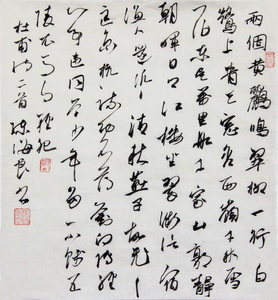 兩個黃鸝鳴翠柳一行白
鷺上青天窗含西嶺千秋雪
門泊東吳萬里船千家山郭靜
朝暉日日江樓坐翠微信宿
漁人還泛泛清秋燕子故飛飛
匡衡抗疏功名薄劉向傳經
心事違同學少年多不賤五
陵衣馬自輕肥
杜甫詩二首 陳海良書